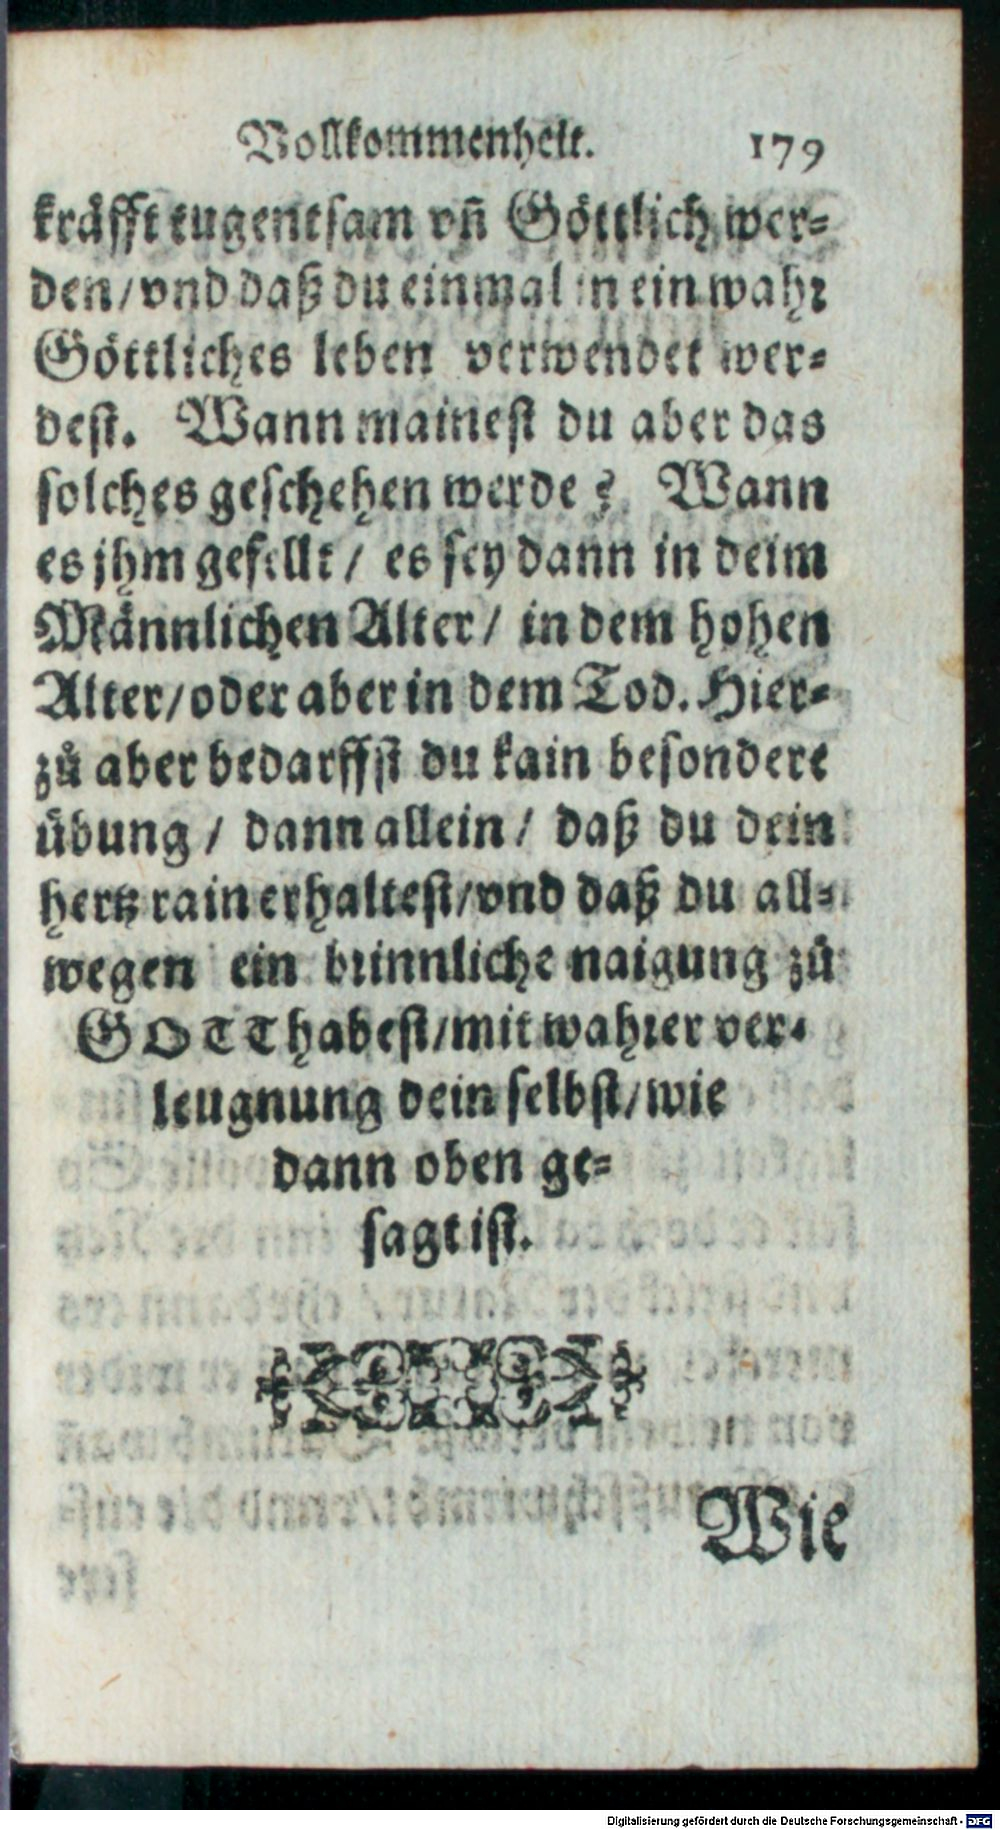 Vollkommenheit. 179
kräfft tugentsam vñ Göttlich wer-
den/vnd daß du einmal in ein wahr
Göttliches leben verwendet wer-
dest. Wann mainest du aber das
solches geschehen werde? Wann
es jhm gefellt/ es sey dann in deim
Männlichen Alter/ in dem hohen
Alter/oder aber in dem Tod. Hier-
zů aber bedarffst du kain besondere
übung/ dann allein/ daß du dein
hertz rain erhaltest/vnd daß du all-
wegen ein brinnliche naigung zů
GOTT habest/mit wahrer ver-
leugnung dein selbst/wie
dann oben ge-
sagt ist.
Wie
Digitalisierung gefördert durch die Deutsche Forschungsgemeinschaft - DFG